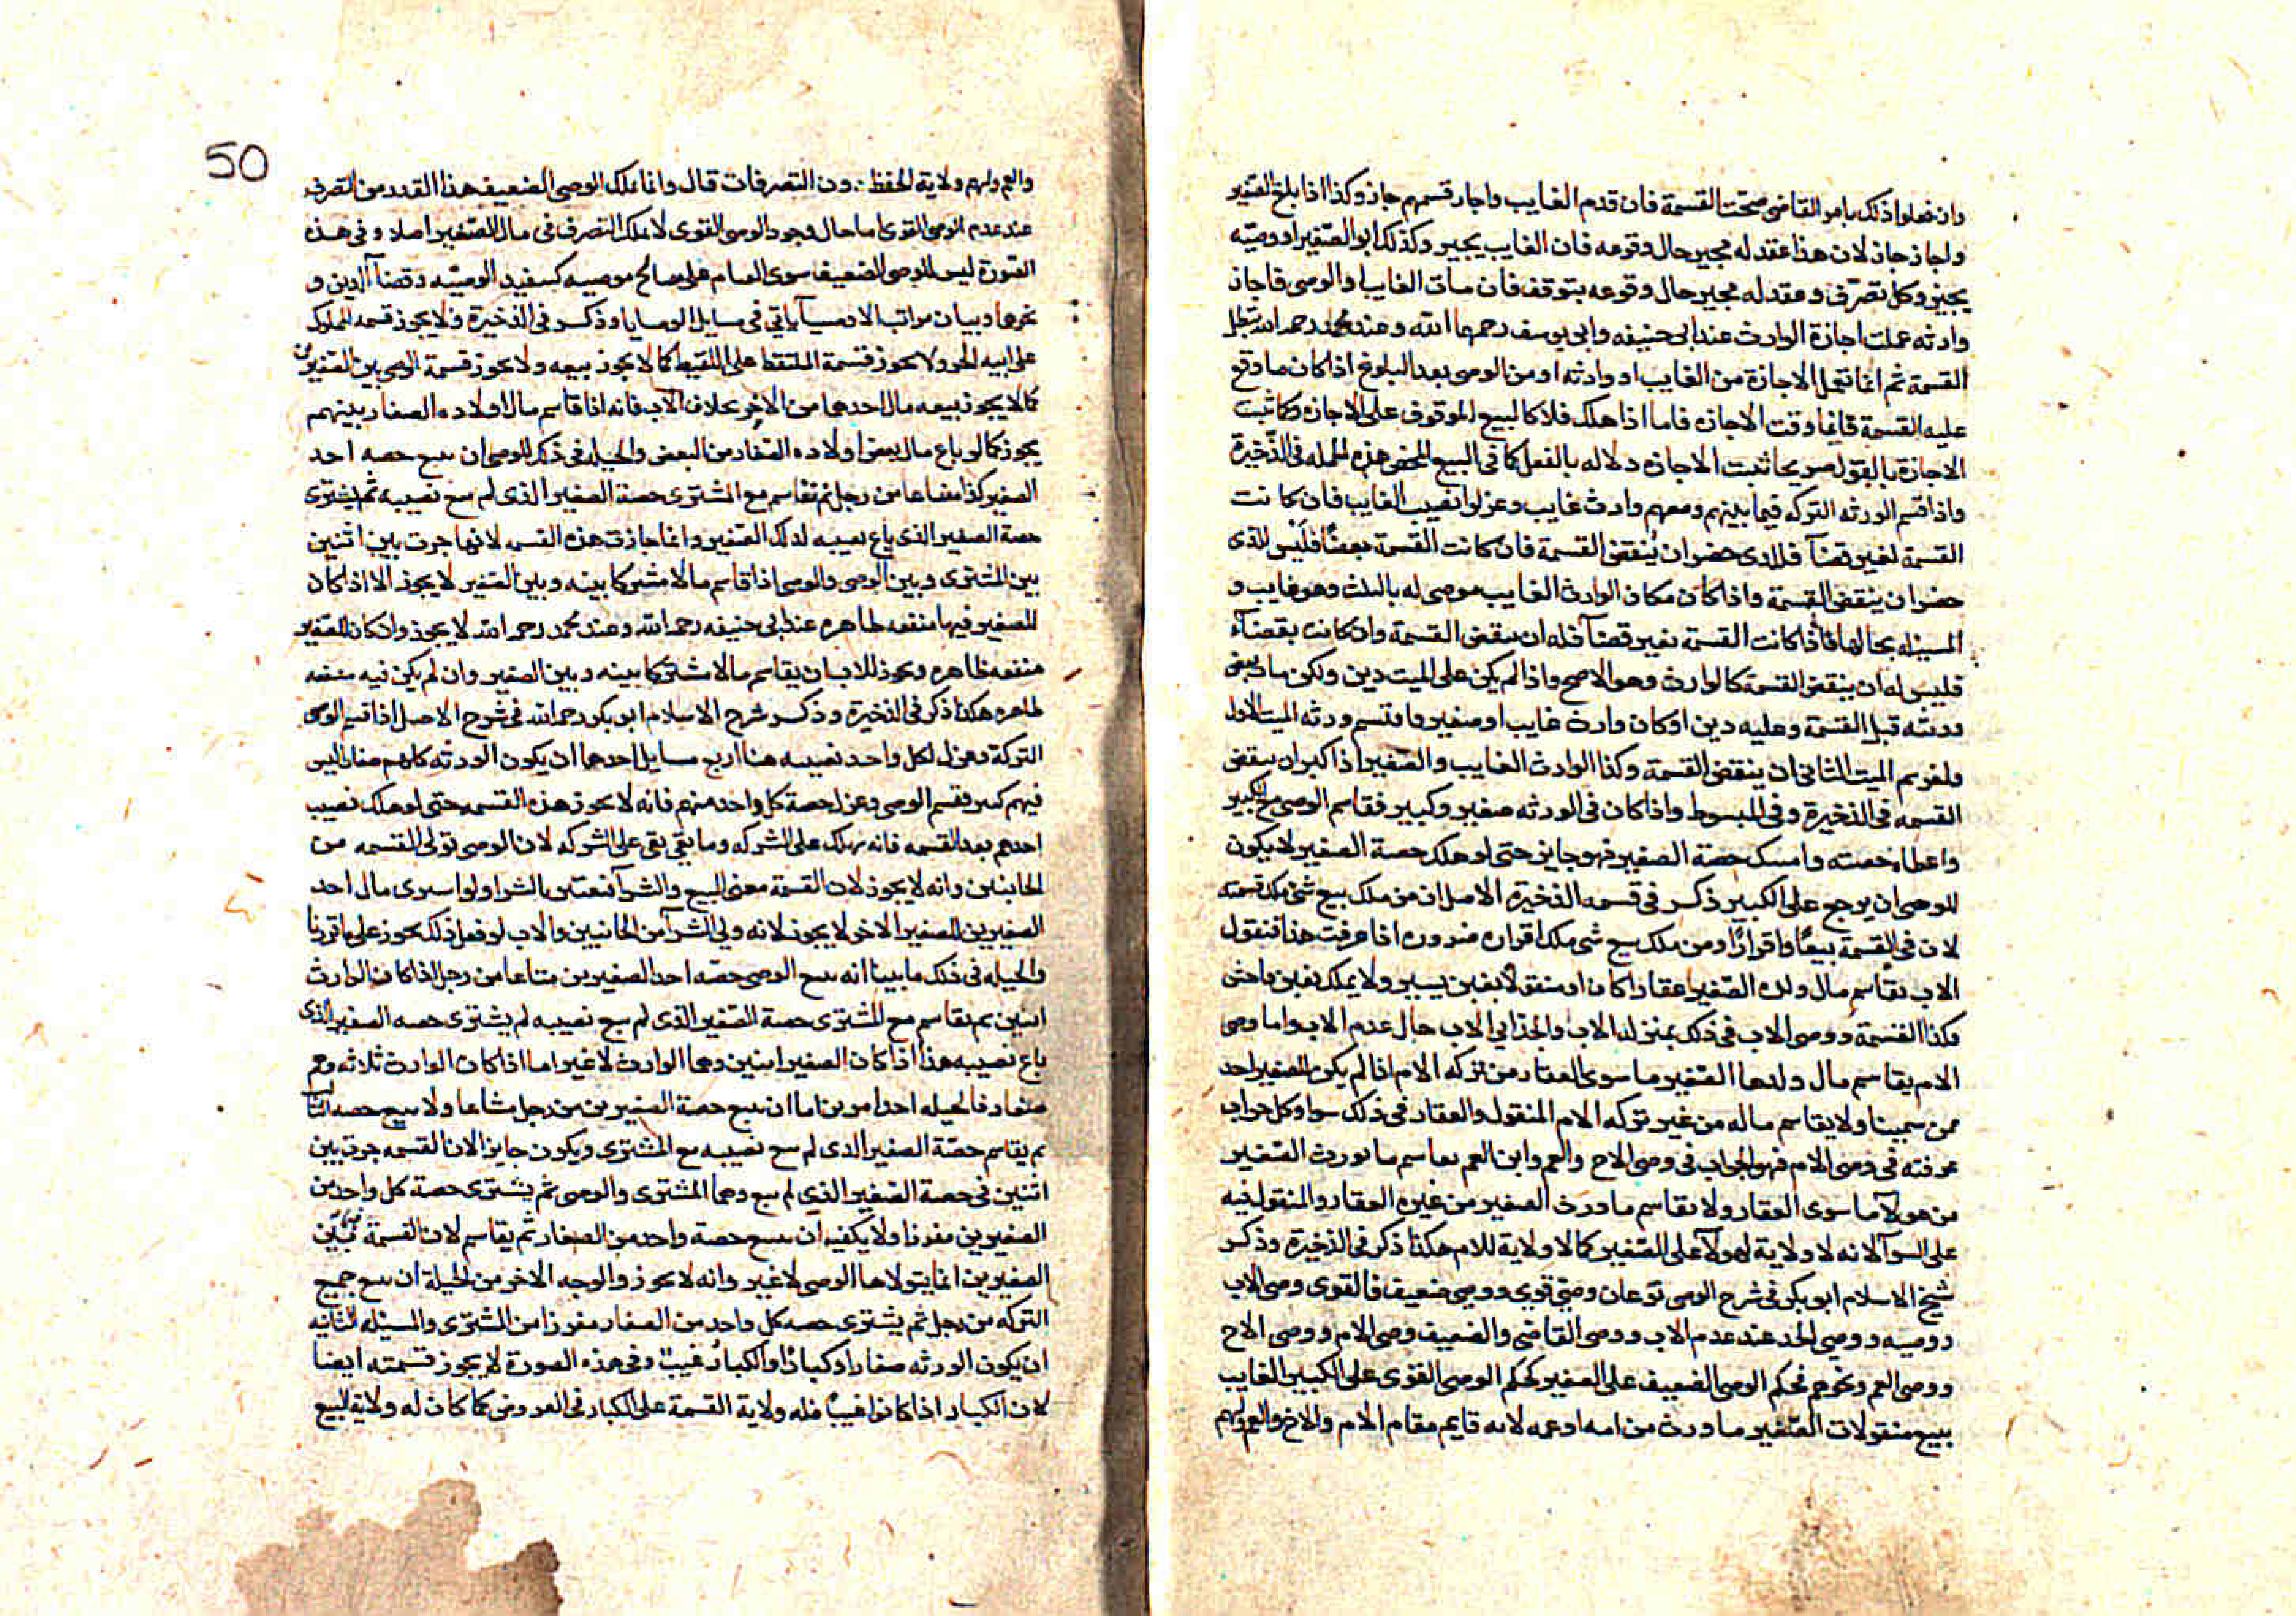 وان فعلوا ذلك بامر القاضى صحت القسمة فان قدم الغايب واجاز قسمهم جاز وكذا اذا بلغ الصغير
واجاز جاز لان هذا عقد له مجيز حال وقوعه فان الغايب يجيز وكذلك ابو الصغير او وصيه
يجيز وكل تصرف وعقد له مجيز حال وقوعه يتوقف فان مات الغايب او الوصى فاجاز
وارثه عملت اجازة الوارث عند ابى حنيفه وابى يوسف رحمهما الله وعند محمد رحمه الله تبطل
القسمة ثم انما تعمل الاجازة من الغايب او وارثه او من الوصى بعد البلوغ اذا كان ما وقع
عليه القسمة قايما وقت الاجازه فاما اذا هلك فلا كالبيع الموقوف على الاجازه وكما ثبت
الاجازة بالقول صريحا ثبت الاجازه دلاله بالفعل كما فى البيع المحض هذه الجمله فى الذخيرة
واذا قسم الورثه التركه فيما بينهم ومعهم وارث غايب وعزلوا نصيب الغايب فان كانت
القسمة لغير قضآ فللذى حضر ان ينقض القسمة فان كانت القسمة بقضآ فليس للذى
حضر ان ينقض القسمة واذا كان مكان الوارث الغايب موصى له بالثلث وهو غايب و
المسئله بحالها فاذا كانت القسمة بغير قضآ فله ان ينقض القسمة وان كانت بقضآء
فليس له ان ينقض القسمة كالوارث وهو الاصح واذا لم يكن على الميت دين ولكن مات بعض
ورثته قبل القسمة وعليه دين او كان وارث غايب او صغير فاقتسم ورثه الميت الاول
فلغريم الميت الثانى ان ينقض القسمة وكذا الوارث الغايب والصغير اذا كبر ان ينقض
القسمه فى الذخيرة وفى المبسوط واذا كان فى الورثه صغير وكبير فقاسم الوصى مع الكبير
واعطاه حصته وامسك حصة الصغير فهو جايز حتى لو هلك حصة الصغير لا يكون
للوصى ان يرجع على الكبير ذكر فى قسمه الذخيرة الاصل ان من ملك بيع شئ ملك قسمته
لان فى القسمة بيعًا واقرارًا ومن ملك بيع شى ملك اقراره ضروره اذا عرفت هذا فنقول
الاب يقاسم مال ولده الصغير عقارا كان او منقولا بغبن يسير ولا يملك بغبن فاحش
فكذا القسمة ووصى الاب فى ذلك بمنزله الاب والجد ابى الاب حال عدم الاب واما وصى
الام يقاسم مال ولدها الصغير ما سوى العقار من تركه الام اذا لم يكن للصغير احد
ممن سمينا ولا يقاسم ماله من غير تركه الام المنقول والعقار فى ذلك سوا وكل جواب
عرفته فى وصى الام فهو الجواب فى وصى الاخ والعم وابن العم يقاسم ما يورث الصغير
من هولآ ما سوى العقار ولا يقاسم ما ورث الصغير من غيره العقار والمنقول فيه
على السوآ لانه لا ولاية لهولآ على الصغير كما لا ولاية للام هكذا ذكر فى الذخيرة وذكر
شيخ الاسلام ابو بكر فى شرح الوصى نوعان وصى قوى ووصى ضعيف فالقوى وصى الاب
ووصيه ووصى الجد عند عدم الاب ووصى القاضى والضعيف وصى الام ووصى الاخ
ووصى العم ونحوهم فحكم الوصى الضعيف على الصغير كحكم الوصى القوى على الكبير الغايب
ببيع منقولات الصغير ما ورث من امه او عمه لانه قايم مقام الام والاخ والعم ولهم
50
والعم ولهم ولاية الحفظ دون التصرفات قال وانما ملك الوصى الضعيف هذا القدر من التصرف
عند عدم الوصى القوى اما حال وجود الوصى القوى لا يملك التصرف فى مال الصغير اصلا وفى هذه
الصورة ليس للوصى الضعيف سوى القيام على مصالح موصيه كتنفيذ الوصيه وقضآ الدين و
نحوها وبيان مراتب الاوصيآ ياتى فى مسايل الوصايا وذكر فى الذخيرة ولا يجوز قسمه المملوك
على ابنه الحر ولا يجوز قسمة الملتقط على اللقيط كما لا يجوز بيعه ولا يجوز قسمة الوصى بين الصغيرين
كما لا يجوز بيعه مال احدهما من الاخر بخلاف الاب فانه اذا قاسم مال اولاده الصغار بينهم
يجوز كما لو باع مال بعض اولاده الصغار من البعض والحيله فى ذلك للوصى ان يبيع حصه احد
الصغير كذا مشاعا من رجل ثم يقاسم مع المشترى حصة الصغير الذى لم يبع نصيبه ثم يشترى
حصة الصغير الذى باع نصيبه لذلك الصغير وانما جازت هذه القسمه لانها جرت بين اثنين
بين المشترى وبين الوصى والوصى اذا قاسم مالا مشتركا بينه وبين الصغير لا يجوز الا اذا كان
للصغير فيها منفعه ظاهره عند ابى حنيفه رحمه الله وعند محمد رحمه الله لا يجوز وان كان للصغير
منفعه ظاهره ويجوز للاب ان يقاسم مالا مشتركا بينه وبين الصغير وان لم يكن فيه منفعه
ظاهره هكذا ذكر فى الذخيرة وذكر شرح الاسلام ابو بكر رحمه الله فى شرح الاصل اذا قسم الوصى
التركة وعزل لكل واحد نصيبه هنا اربع مسايل احدهما ان يكون الورثه كلهم صغار ليس
فيهم كبير وقسم الوصى وعزل حصة كل واحد منهم فانه لا يجوز هذه القسمه حتى لو هلك نصيب
احدهم بعد القسمه فانه يهلك على الشركه وما بقى بقى على الشركه لان الوصى تولى القسمه من
الجانبين وانه لا يجوز لان القسمة معنى البيع والشرآ فتعتبر بالشرا ولو اشترى مال احد
الصغيرين للصغير الاخر لا يجوز لانه ولى الشرآ من الجانبين والاب لو فعل ذلك يجوز على ما قررنا
والحيله فى ذلك ما بينا انه يبيع الوصى حصه احد الصغيرين مشاعا من رجل اذا كان الوارث
اثنين ثم يقاسم مع المشترى حصة الصغير الذى لم يبع نصيبه ثم يشترى حصه الصغير الذى
باع نصيبه هذا اذا كان الصغير اثنين وهما الوارث لا غير اما اذا كان الوارث ثلاثه وهم
صغار فالحيله احد امرين اما ان يبيع حصة الصغيرين من رجل مشاعا ولا يبيع حصه الثالث
ثم يقاسم حصة الصغير الذى لم يبع نصيبه مع المشترى ويكون جايز الان القسمه جرت بين
اثنين فى حصة الصغير الذى لم يبع وهما المشترى والوصى ثم يشترى حصة كل واحد من
الصغيرين مفرزا ولا يكفيه ان يبيع حصة واحد من الصغار ثم يقاسم لان القسمة بين
الصغيرين انما يتولاها الوصى لا غير وانه لا يجوز والوجه الاخر من الحيلة ان يبيع جميع
التركه من رجل ثم يشترى حصه كل واحد من الصغار مفرزا من المشترى والمسئله الثانيه
ان يكون الورثه صغارا وكبارا والكبار غيب وفى هذه الصورة لا يجوز قسمته ايضا
لان الكبار اذا كانوا غيبًا فله ولاية القسمة على الكبار فى العروض كما كان له ولاية البيع